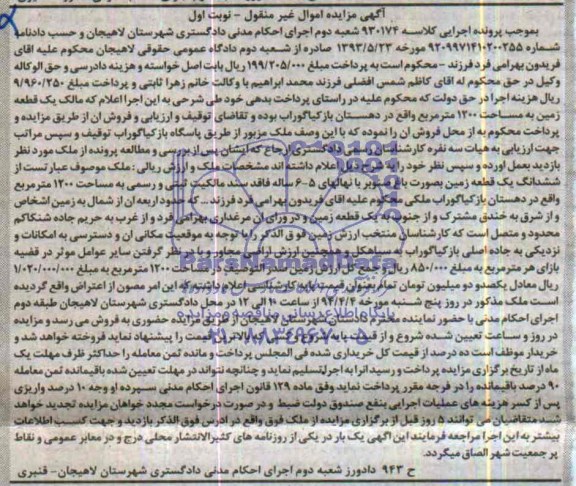 آگهی مزایده اموال غیر منقول - نوبت اول
بموجب پرونده اجرایی کلاسه ۹۳۰۱۷۴ شعبه دوم اجرای احکام مدنی دادگستری شهرستان لاهیجان و حسب دادنامه
شماره ۹۲۰۹۹۷۱۴۱۰۲۰۰۲۵۵ مورخه ۱۳۹۳/۵/۲۳ صادره از شعبه دوم دادگاه عمومی حقوقی لاهیجان محکوم علیه آقای
فریدون بهرامی فرد فرزند - محکوم است به پرداخت مبلغ ۱۹۹/۲۰۵/۰۰۰ ریال بابت اصل خواسته و هزینه دادرسی و حق الوکاله
وکیل در حق محکوم له آقای کاظم شمس افضلی فرزند محمد ابراهیم با وکالت خانم زهرا ثابتی و پرداخت مبلغ ۹/۹۶۰/۲۵۰
ریال هزینه اجرا در حق دولت که محکوم علیه در راستای پرداخت بدهی خود طی شرحی به این اجرا اعلام که مالک یک قطعه
زمین به مساحت ۱۲۰۰ مترمربع واقع در دهستان بازکیاگوراب بوده و تقاضای توقیف و ارزیابی و فروش آن از طریق مزایده و
پرداخت محکوم به از محل فروش آن را نموده که با این وصف ملک مزبور از طریق پاسگاه بازکیاگوراب توقیف و سپس مراتب
جهت ارزیابی به هیات سه نفره کارشناسان رسمی دادگستری ارجاع که ایشان پس از بررسی و مطالعه پرونده از ملک مورد نظر
بازدید بعمل آورده و سپس نظر خود را به شرح ذیل اعلام داشته اند مشخصات ملک و ارزش ریالی: ملک موصوف عبارتست از
ششدانگ یک قطعه زمین بصورت باغ صنوبر با نهالهای ۵-۶ ساله فاقد سند مالکیت ثبتی و رسمی به مساحت ۱۲۰۰ مترمربع
واقع در دهستان بازکیاگوراب ملکی محکوم علیه آقای فریدون بهرامی فرد فرزند ... که حدود اربعه آن از شمال به زمین اشخاص
و از شرق به خندق مشترک و از جنوب به یک قطعه زمین و در ورای آن مرغداری بهرامی فرد و از غرب به حریم جاده شنکاکم
محدود و متصل است که کارشناسان منتخب ارزش زمین فوق الذکر را با توجه به موقعیت مکانی آن و دسترسی به امکانات و
نزدیکی به جاده اصلی بازکیاگوراب به سیاهکل و همچنین ارزش اراضی مجاور و با در نظر گرفتن سایر عوامل موثر در قضیه
بازای هر مترمربع به مبلغ ۸۵۰/۰۰۰ ریال و جمع کل ارزش زمین به مساحت ۱۲۰۰ مترمربع به مبلغ ۱/۰۲۰/۰۰۰/۰۰۰
ریال معادل یکصد و دو میلیون تومان تمام بعنوان قیمت پایه کارشناسی اعلام داشته که این امر مصون از اعتراض واقع گردیده
است ملک مذکور در روز پنج شنبه مورخه ۹۴/۴/۴ از ساعت ۱۰ الی ۱۲ در محل دادگستری شهرستان لاهیجان طبقه دوم
اجرای احکام مدنی با حضور نماینده محترم دادستان شهرستان لاهیجان از طریق مزایده حضوری به فروش می رسد و مزایده
در روز و ساعت تعیین شده شروع و از قیمت پایه شروع و به کسی که بالاترین قیمت را پیشنهاد نماید فروخته خواهد شد و
خریدار موظف است ده درصد از قیمت کل خریداری شده فی المجلس پرداخت و مانده ثمن معامله را حداکثر ظرف مهلت یک
ماه از تاریخ برگزاری مزایده پرداخت و رسید آنرا به اجرا تسلیم نماید و چنانچه نتواند در مهلت تعیین شده باقیمانده ثمن معامله
۹۰ درصد باقیمانده را در فرجه مقرر پرداخت نماید وفق ماده ۱۲۹ قانون اجرای احکام مدنی سپرده او وجه ۱۰ درصد واریزی
پس از کسر هزینه های عملیات اجرایی بنفع صندوق دولت ضبط و در صورت درخواست مجدد خواهان مزایده تجدید خواهد
شد متقاضیان می توانند ۵ روز قبل از برگزاری مزایده از ملک فوق واقع در آدرس فوق الذکر بازدید و جهت کسب اطلاعات
بیشتر به این اجرا مراجعه فرمایند این آگهی یک بار در یکی از روزنامه های کثیرالانتشار محلی درج و در معابر عمومی و نقاط
پر جمعیت شهر الصاق میگردد.
ح ۹۴۳ دادورز شعبه دوم اجرای احکام مدنی دادگستری شهرستان لاهیجان- قنبری